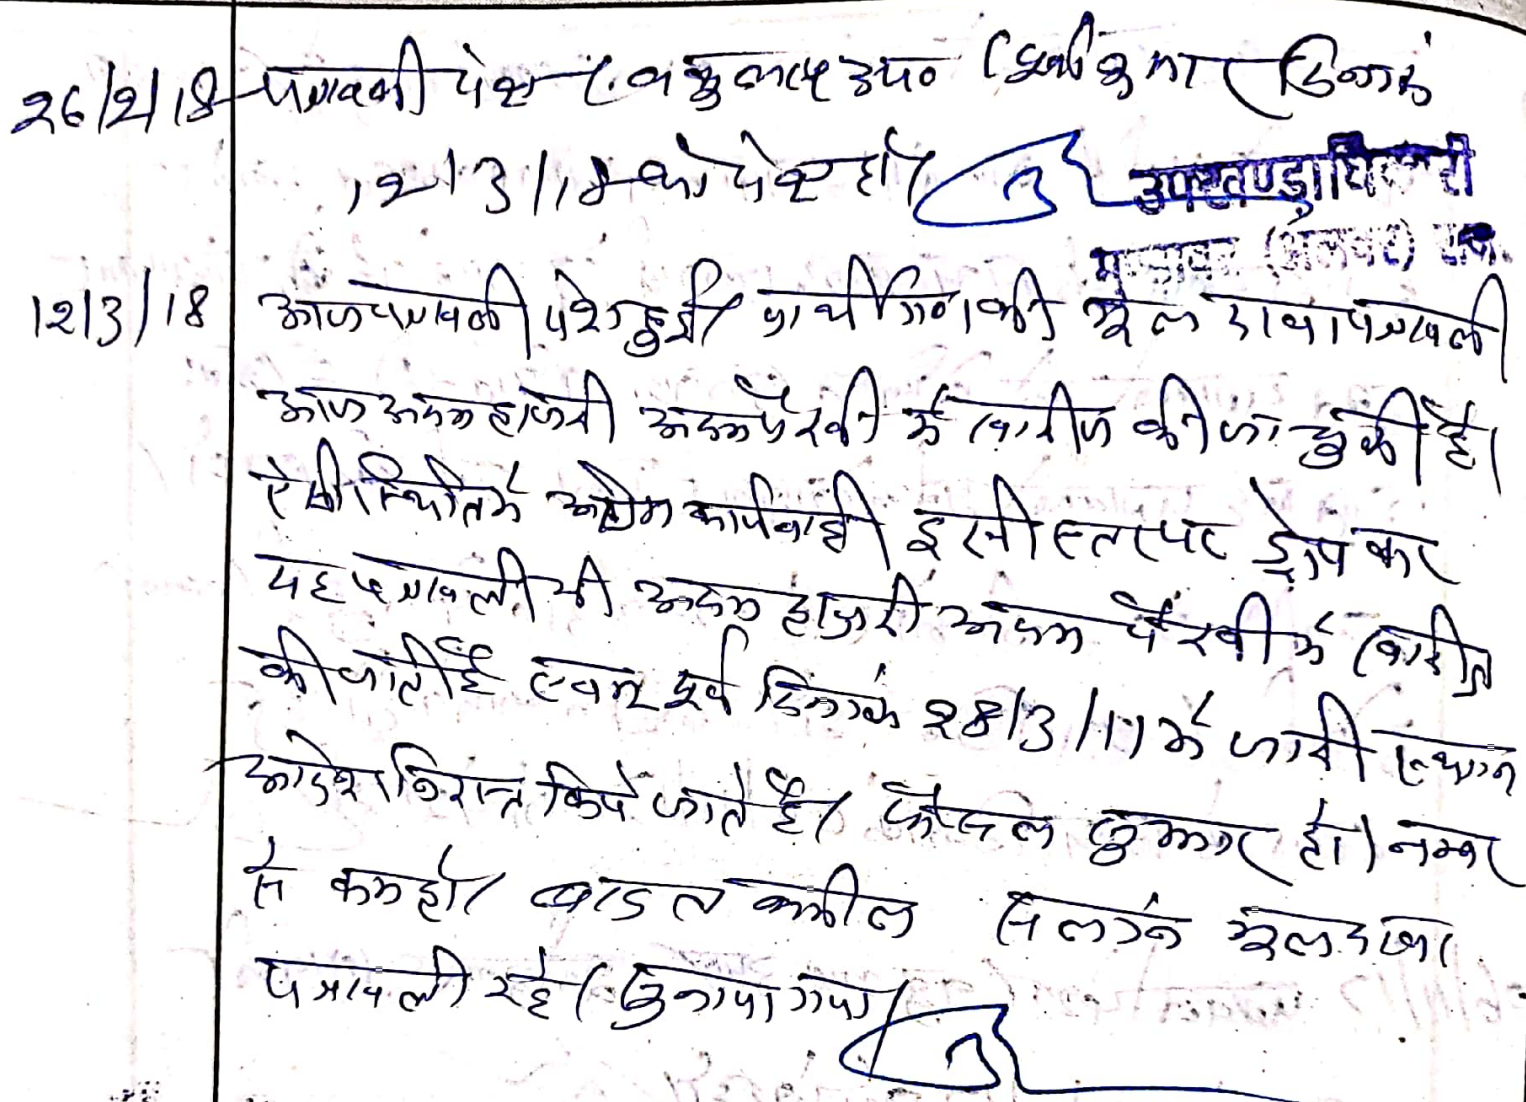 26/2/18 पत्रावली पेश। वकुलाय उप० दिनांक
12/3/18 को पेश हो।
उपखण्डाधिकारी
(अलवर) राज.
12/3/18 आज पत्रावली पेश हुई। प्रार्थीगण की मूल दावा पत्रावली
आज अदम हाजरी अदम पैरवी में खारीज की जा चुकी है।
ऐसी स्थिति में कार्यवाही इसी स्तर पर ड्रोप कर
यह पत्रावली भी अदम हाजरी अदम पैरवी में खारीज
की जाती है एवम् पूर्व दिनांक 28/3/11 में जारी स्थगन
आदेश निरस्त किये जाते है। फैसल शुमार हो। नम्बर
से कम हो। बाद तकमील संलग्न मूल दावा
पत्रावली रहे। सुनाया गया।